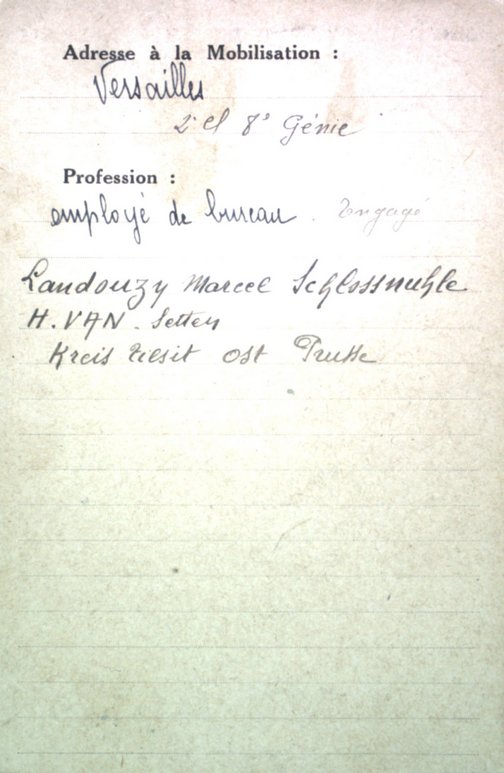 Adresse à la Mobilisation :
Versailles
2e et 8e Génie
Profession :
employé de bureau. Engagé
Landouzy Marcel Schlossmuhle
H. VAN. Setten
Kreis Tilsit Ost Prusse